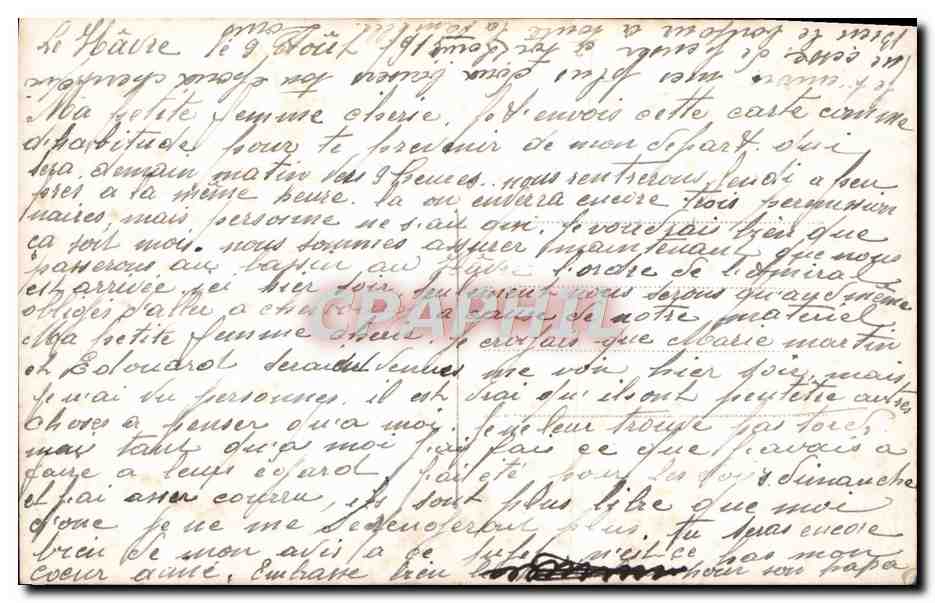 Le Hâvre le 9 Août 191
Ma petite femme cherie. Je t'envois cette carte comme
d'habitude pour te prevenir de mon depart qui
sera demain matin vers 9 heures. nous rentrerons Jeudi a peu
pres a la même heure. la on enverra encore trois permission
naires, mais personne ne s'ait qui. Je voudrais bien que
ça soit moi. nous sommes assurer maintenant que nous
passerons au bassin au Hâvre l'ordre de l'Amiral
est arrivée ici hier soir seulement nous serons quand même
obligés d'aller a a cause de notre materiel.
Ma petite femme cherie. Je croyais que Marie martin
et Edouard seraient venues me voir hier soir, mais
Je n'ai vu personnes, il est vrai qu'ils ont peutêtre autres
choses a penser qu'a moi. Je ne leur trouve pas tord,
mais tant qu'a moi J'ais fais ce que J'avais a
faire a leurs égard J'ai été pour les voir dimanche
et J'ai asser courru, ils sont plus libre que moi
d'onc Je ne me derengerant plus, tu seras encore
bien de mon avis a ce sujet n'est ce pas mon
coeur aimé. Embrasse bien pour son papa
CPAPHIL